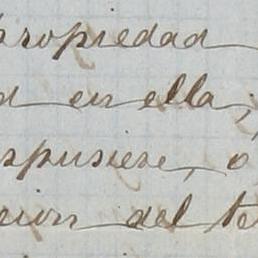 propiedad
d en ella,
spusiere, o
cion del te